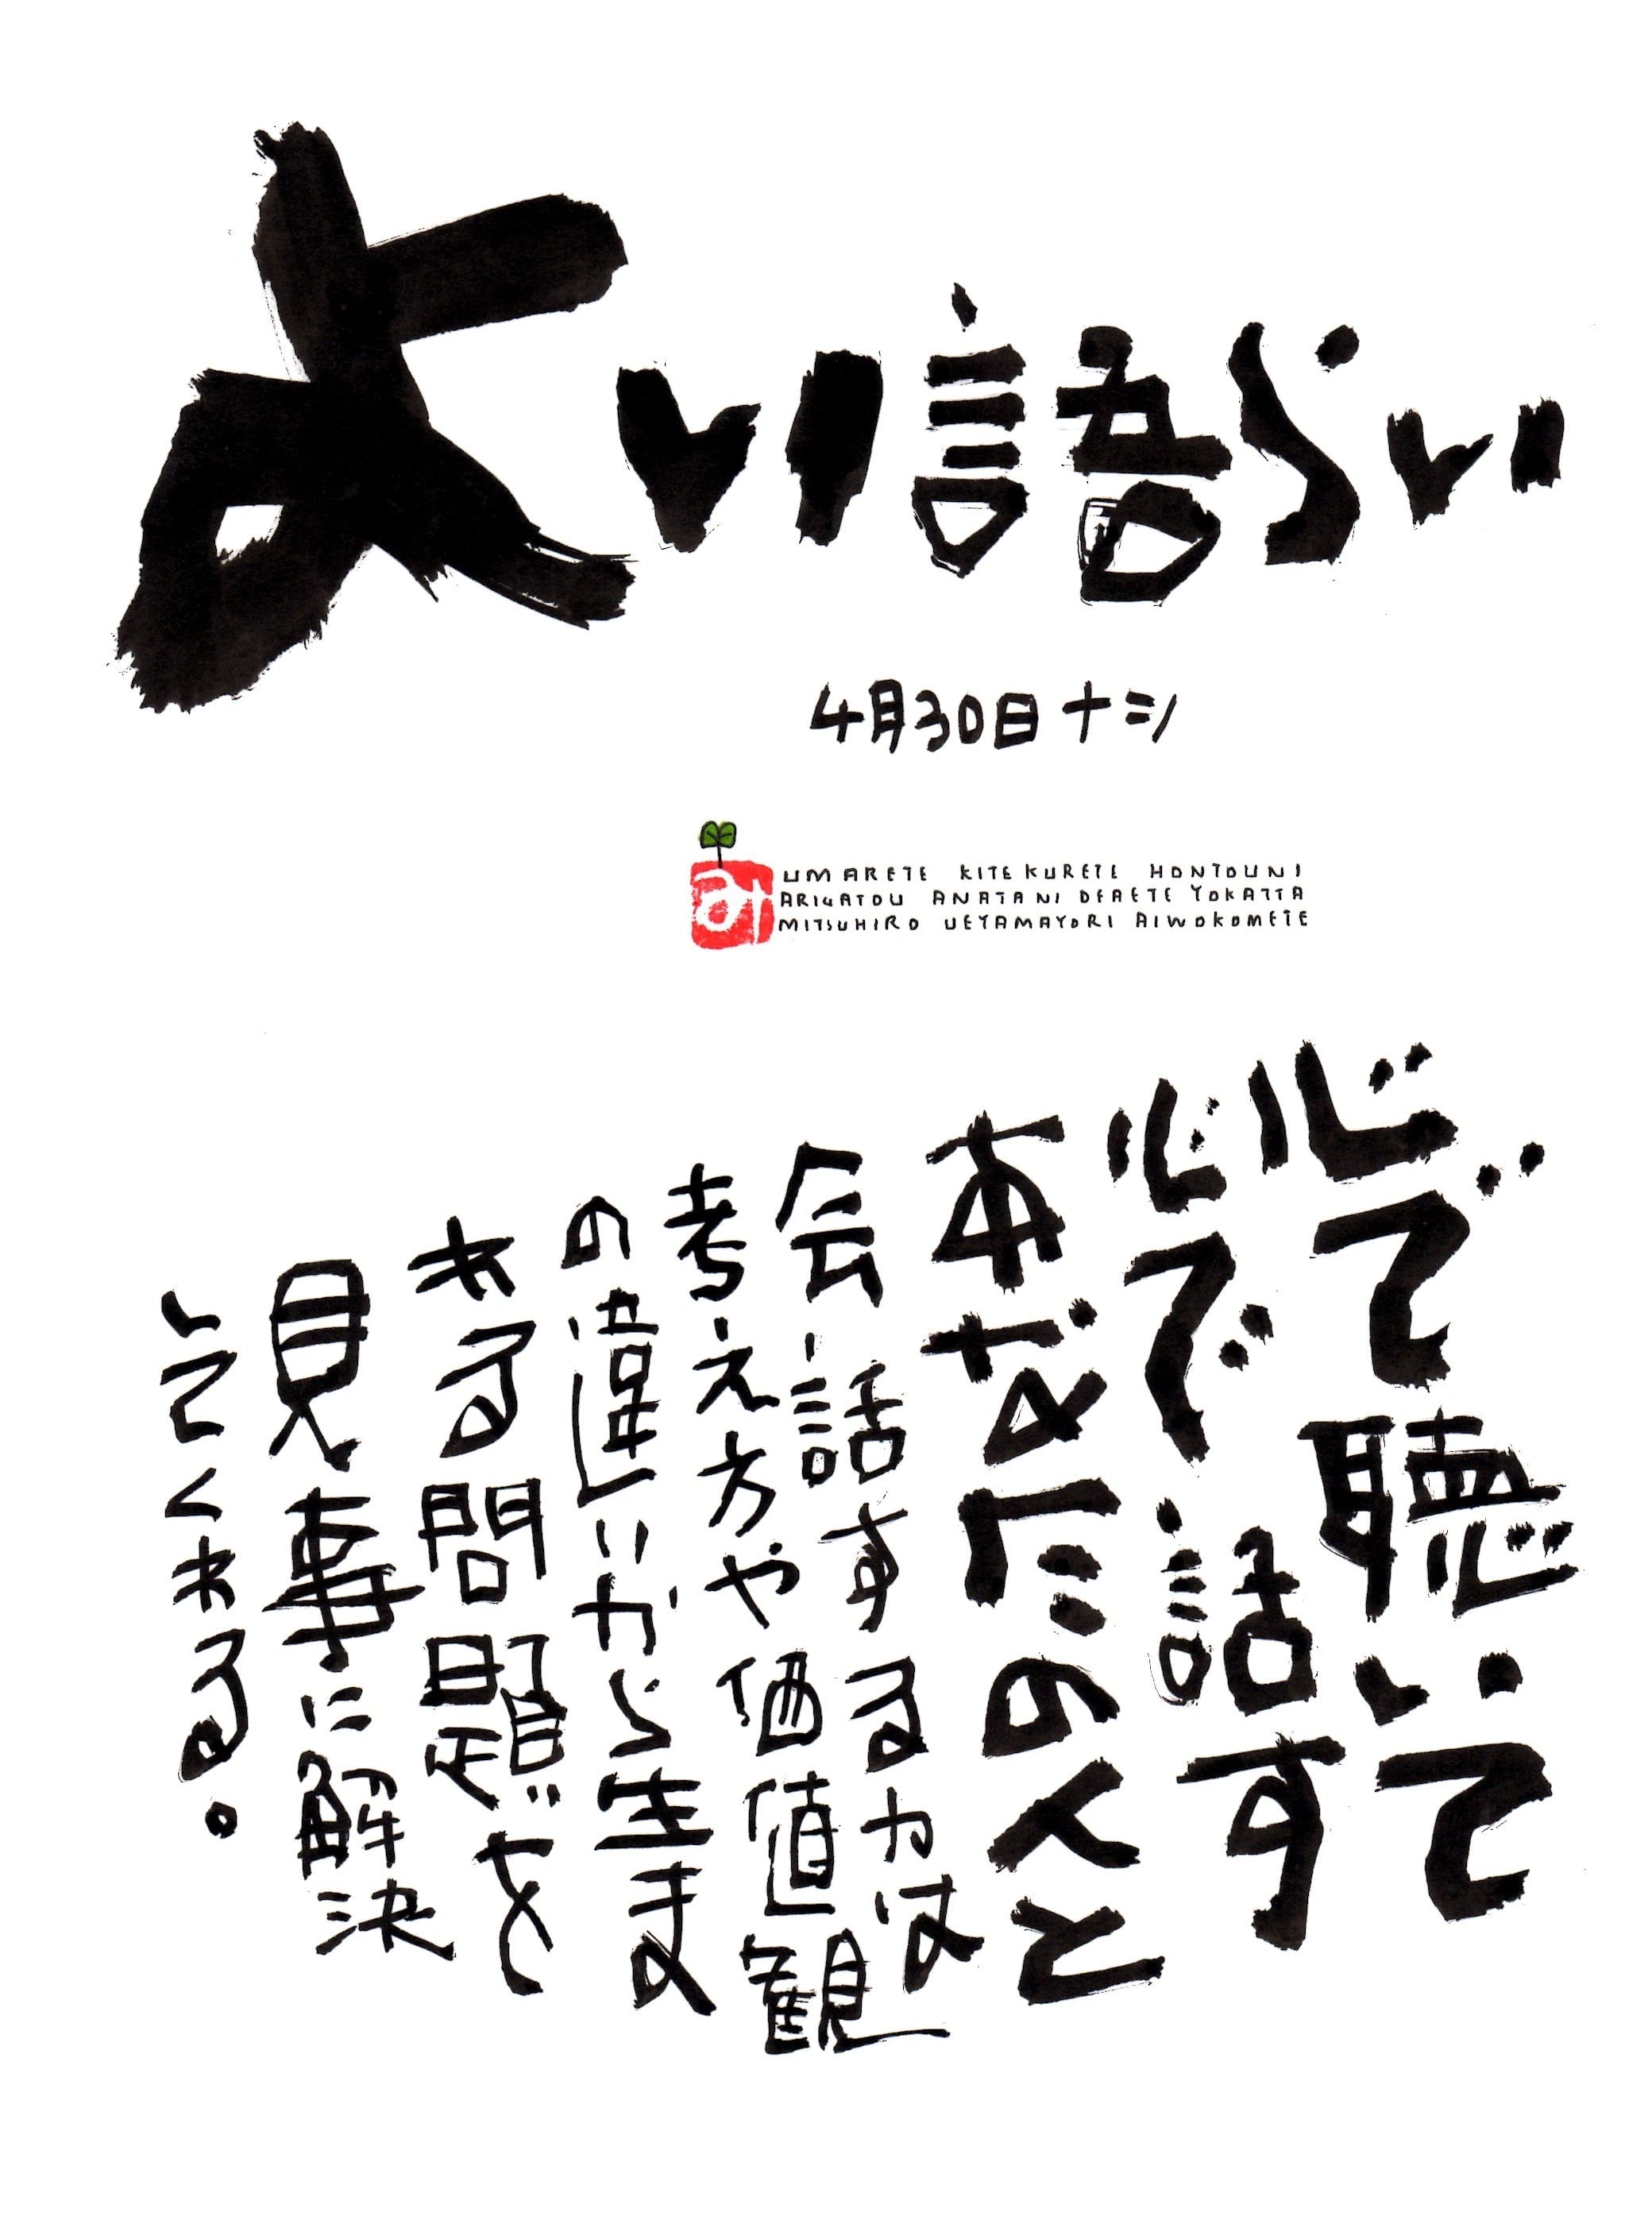 よい語らい
4月30日 十ニシ
UMARETE KITEKURETE HONTOUNI
ARIGATOU ANATANI DEAETE YOKATTA
MITSUHIRO UEYAMAYORI AIWOKOMETE
心で聴いて
心で話す
あなたの人と
会話する力は
考え方や価値観
の違いから生ま
れる問題を
見事に解決
してくれる。